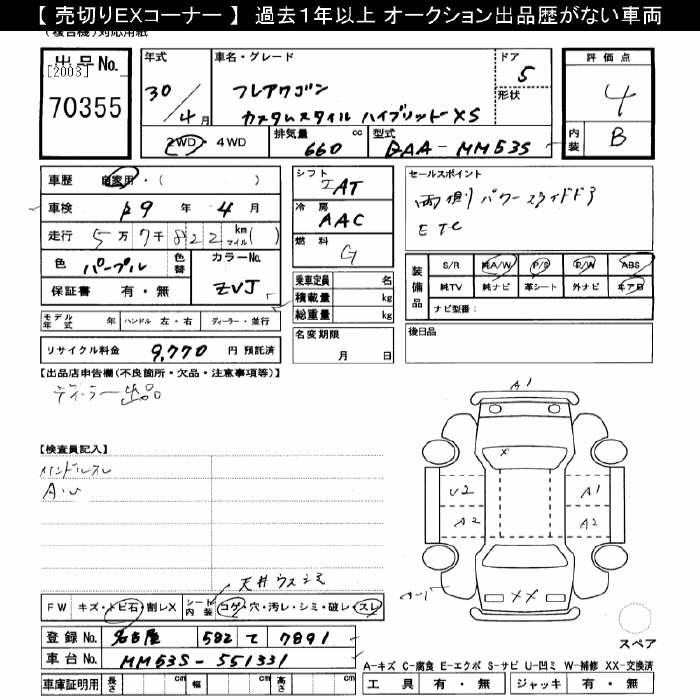 【 売切りEXコーナー 】 過去１年以上 オークション出品歴がない車両
(複合機)対応用紙
出品No.
[2003]
70355
年式
30/4月
車名・グレード
フレアワゴン
カスタムスタイル ハイブリッドXS
ドア
5
形状
評価点
4
内装
B
2WD・4WD
排気量
660 cc
型式
DAA-MM53S
車歴 自家用・( )
車検 R9 年 4 月
走行 5万7千822 km マイル( )
色 パープル 色替
カラーNo.
ZVJ
保証書 有・無
シフト
IAT
冷房
AAC
燃料
G
乗車定員 名
積載量 kg
総重量 kg
セールスポイント
両側パワースライドドア
ETC
装備品
S/R 純A/W P/S P/W ABS
純TV 純ナビ 革シート 外ナビ エアB
ナビ型番：
モデル年式 年 ハンドル 左・右 ディーラー・並行
名変期限
月 日
後日品
リサイクル料金 9,770 円 預託済
【出品店申告欄(不良箇所・欠品・注意事項等)】
ディーラー出品
【検査員記入】
ハンドルスレ
A・U
A1
X
U2
A1
A2
A2
XX
天井ウスシミ
FW キズ・トビ石・割レX
シート内装 コゲ・穴・汚レ・シミ・破レ・スレ
スペア
登録No. 名古屋 582 て 7891
車台No. MM53S-551331
A-キズ C-腐食 E-エクボ S-サビ U-凹ミ W-補修 XX-交換済
車庫証明用 長さ cm 幅 cm 高さ cm
工具 有・無 ジャッキ 有・無